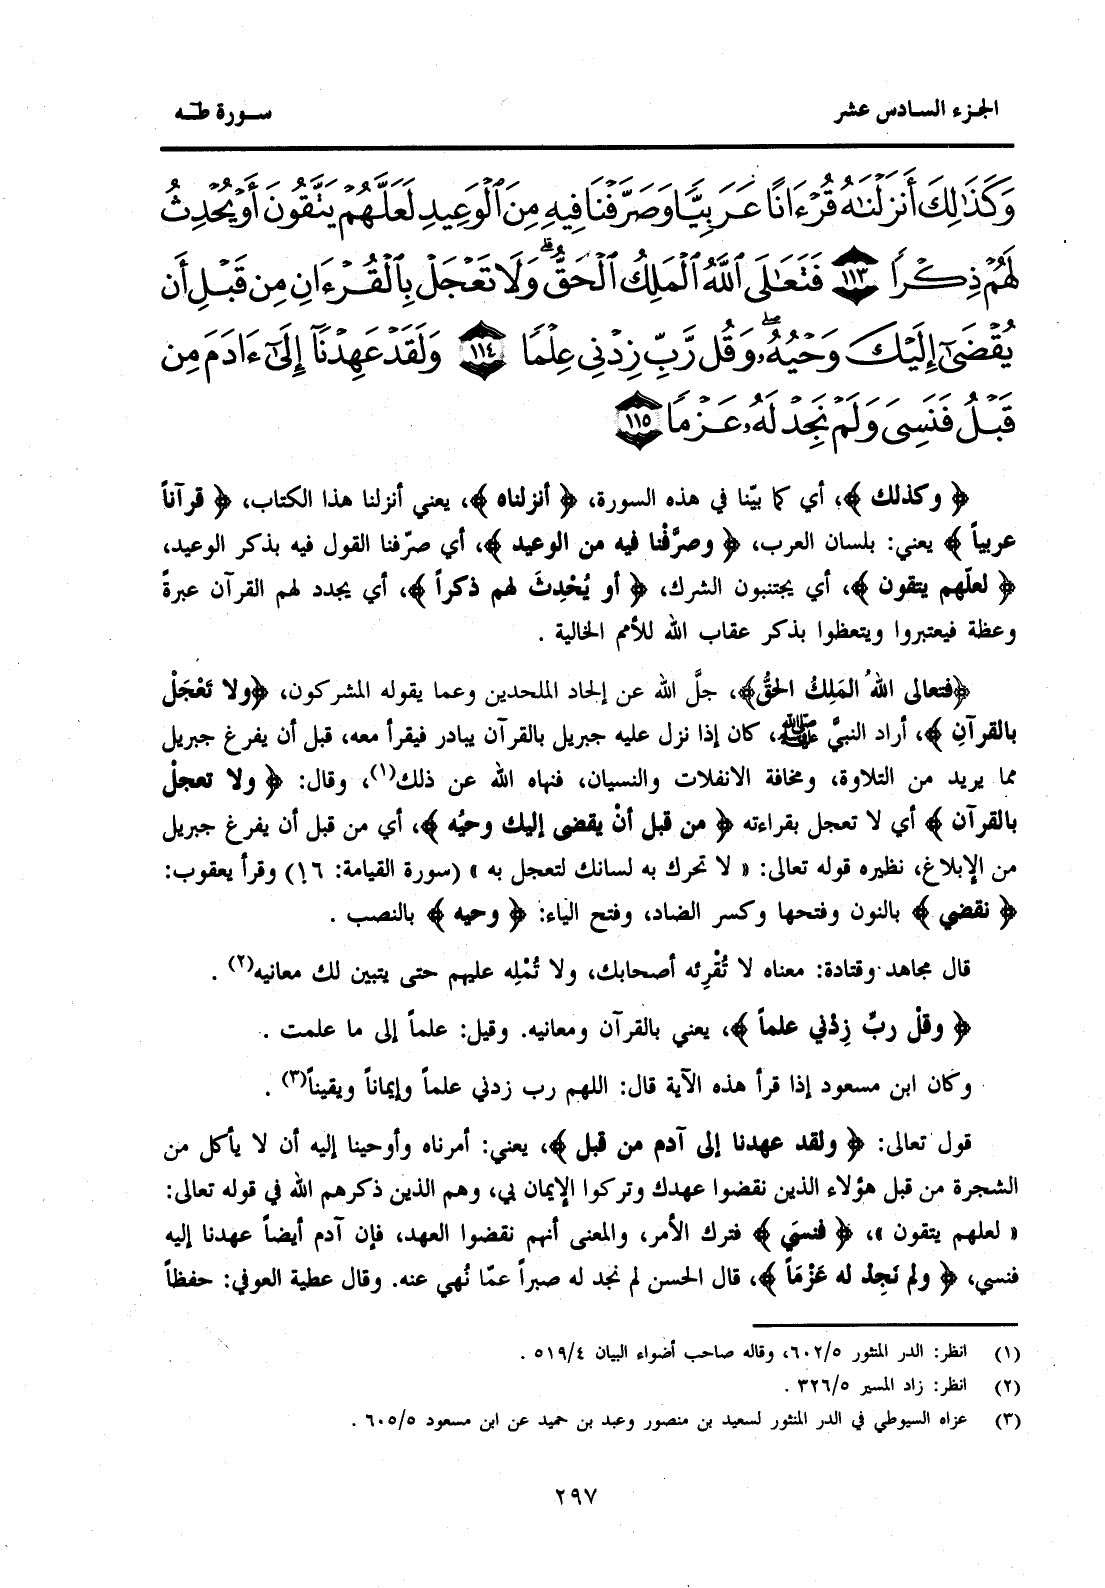 الجزء السادس عشر
سورة طه
وَكَذَٰلِكَ أَنزَلْنَٰهُ قُرْءَانًا عَرَبِيًّا وَصَرَّفْنَا فِيهِ مِنَ ٱلْوَعِيدِ لَعَلَّهُمْ يَتَّقُونَ أَوْ يُحْدِثُ
لَهُمْ ذِكْرًا ١١٣ فَتَعَٰلَى ٱللَّهُ ٱلْمَلِكُ ٱلْحَقُّ ۗ وَلَا تَعْجَلْ بِٱلْقُرْءَانِ مِن قَبْلِ أَن
يُقْضَىٰٓ إِلَيْكَ وَحْيُهُۥ ۖ وَقُل رَّبِّ زِدْنِى عِلْمًا ١١٤ وَلَقَدْ عَهِدْنَآ إِلَىٰٓ ءَادَمَ مِن
قَبْلُ فَنَسِىَ وَلَمْ نَجِدْ لَهُۥ عَزْمًا ١١٥
﴿ وكذلك ﴾، أي كما بيّنا في هذه السورة، ﴿ أنزلناه ﴾، يعني أنزلنا هذا الكتاب، ﴿ قرآناً
عربياً ﴾ يعني: بلسان العرب، ﴿ وصرَّفْنا فيه من الوعيد ﴾، أي صرّفنا القول فيه بذكر الوعيد،
﴿ لعلّهم يتقون ﴾، أي يجتنبون الشرك، ﴿ أو يُحْدِثَ لهم ذكراً ﴾، أي يجدد لهم القرآن عبرةً
وعظة فيعتبروا ويتعظوا بذكر عقاب الله للأمم الخالية .
﴿فتعالى اللهُ المَلِكُ الحَقُّ﴾، جلَّ الله عن إلحاد الملحدين وعما يقوله المشركون، ﴿ولا تَعْجَلْ
بالقرآنِ ﴾، أراد النبيَّ ﷺ، كان إذا نزل عليه جبريل بالقرآن يبادر فيقرأ معه، قبل أن يفرغ جبريل
مما يريد من التلاوة، ومخافة الانفلات والنسيان، فنهاه الله عن ذلك(١)، وقال: ﴿ ولا تعجلْ
بالقرآن ﴾ أي لا تعجل بقراءته ﴿ من قبل أنْ يقضى إليك وحيُه ﴾، أي من قبل أن يفرغ جبريل
من الإبلاغ، نظيره قوله تعالى: « لا تحرك به لسانك لتعجل به » (سورة القيامة: ١٦) وقرأ يعقوب:
﴿ نقضي ﴾ بالنون وفتحها وكسر الضاد، وفتح الياء: ﴿ وحيه ﴾ بالنصب .
قال مجاهد وقتادة: معناه لا تُقْرِئه أصحابك، ولا تُمْلِه عليهم حتى يتبين لك معانيه(٢) .
﴿ وقلْ ربِّ زِدْني علماً ﴾، يعني بالقرآن ومعانيه. وقيل: علماً إلى ما علمت .
وكان ابن مسعود إذا قرأ هذه الآية قال: اللهم رب زدني علماً وإيماناً ويقيناً(٣) .
قول تعالى: ﴿ ولقد عهدنا إلى آدم من قبل ﴾، يعني: أمرناه وأوحينا إليه أن لا يأكل من
الشجرة من قبل هؤلاء الذين نقضوا عهدك وتركوا الإيمان بي، وهم الذين ذكرهم الله في قوله تعالى:
« لعلهم يتقون »، ﴿ فنسيَ ﴾ فترك الأمر، والمعنى أنهم نقضوا العهد، فإن آدم أيضاً عهدنا إليه
فنسي، ﴿ ولم نَجِدْ له عَزْمَاً ﴾، قال الحسن لم نجد له صبراً عمّا نُهي عنه. وقال عطية العوفي: حفظاً
(١) انظر: الدر المنثور ٦٠٢/٥، وقاله صاحب أضواء البيان ٥١٩/٤ .
(٢) انظر: زاد المسير ٣٢٦/٥ .
(٣) عزاه السيوطي في الدر المنثور لسعيد بن منصور وعبد بن حميد عن ابن مسعود ٦٠٥/٥ .
٢٩٧